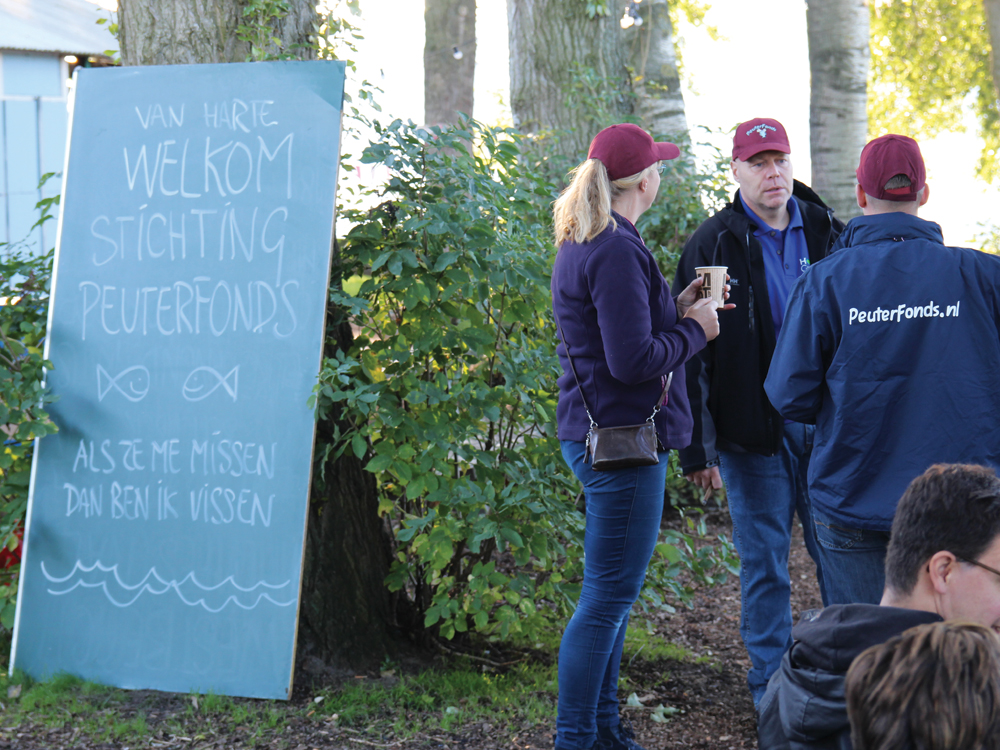 VAN HARTE
WELKOM
STICHTING
PEUTERFONDS
ALS ZE ME MISSEN
DAN BEN IK VISSEN
PeuterFonds
PeuterFonds.nl